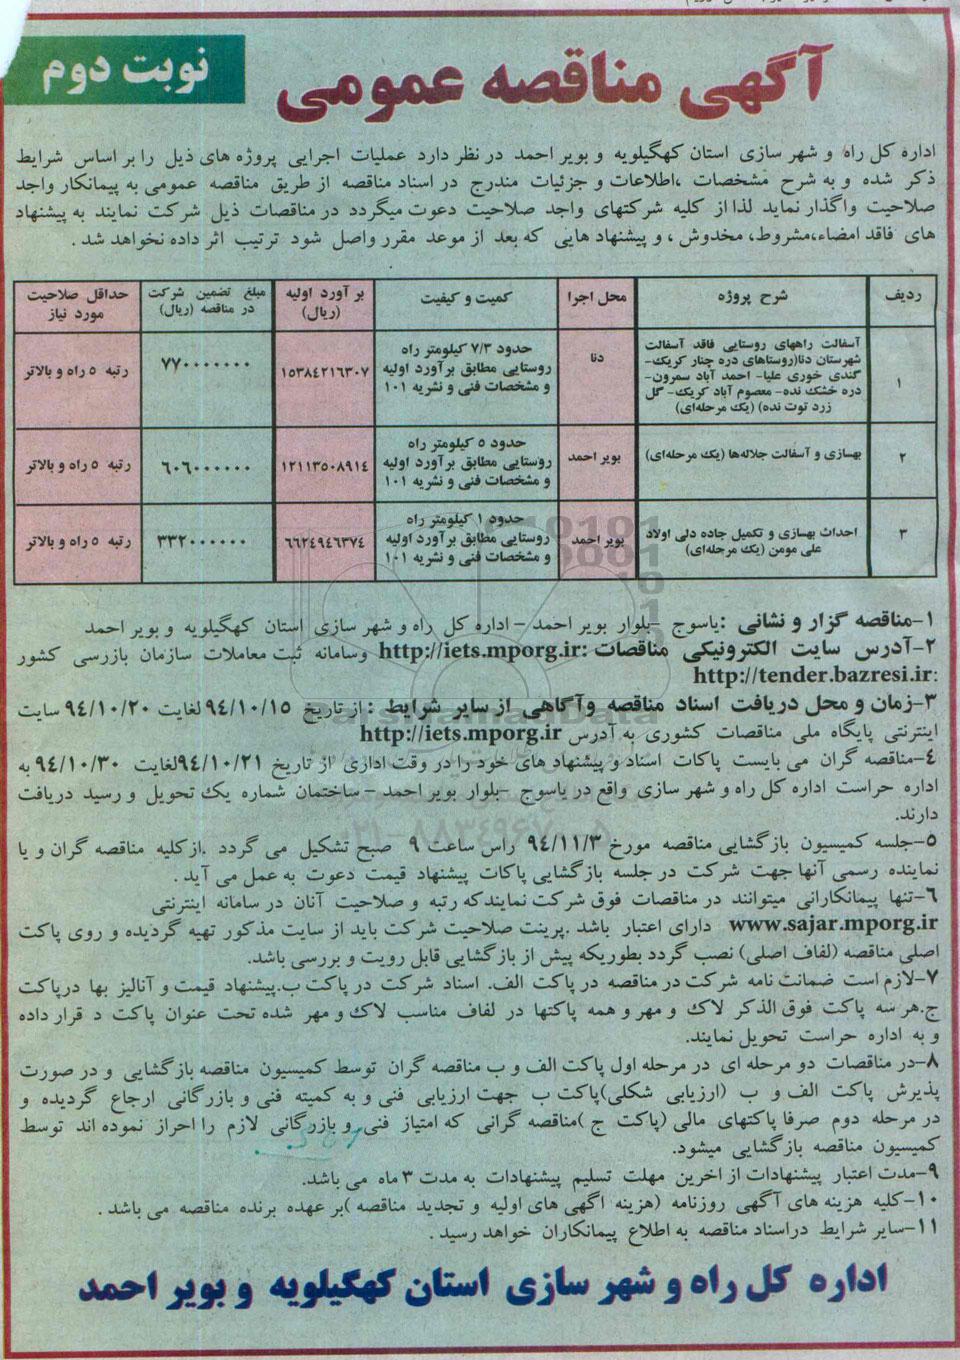 آگهی مناقصه عمومی
نوبت دوم
اداره کل راه و شهر سازی استان کهگیلویه و بویر احمد در نظر دارد عملیات اجرایی پروژه های ذیل را بر اساس شرایط
ذکر شده و به شرح مشخصات ،اطلاعات و جزئیات مندرج در اسناد مناقصه از طریق مناقصه عمومی به پیمانکار واجد
صلاحیت واگذار نماید لذا از کلیه شرکتهای واجد صلاحیت دعوت میگردد در مناقصات ذیل شرکت نمایند به پیشنهاد
های فاقد امضاء،مشروط، مخدوش ، و پیشنهاد هایی که بعد از موعد مقرر واصل شود ترتیب اثر داده نخواهد شد .
ردیف
شرح پروژه
محل اجرا
کمیت و کیفیت
بر آورد اولیه
(ریال)
مبلغ تضمین شرکت
در مناقصه (ریال)
حداقل صلاحیت
مورد نیاز
۱
آسفالت راههای روستایی فاقد آسفالت
شهرستان دنا(روستاهای دره چنار کریک-
گندی خوری علیا- احمد آباد سمرون-
دره خشک نده- معصوم آباد کریک- گل
زرد توت نده) (یک مرحله‌ای)
دنا
حدود ۷/۳ کیلومتر راه
روستایی مطابق برآورد اولیه
و مشخصات فنی و نشریه ۱۰۱
۱۵۳۸۴۲۱۶۳۰۷
۷۷۰۰۰۰۰۰۰
رتبه ۵ راه و بالاتر
۲
بهسازی و آسفالت جلاله‌ها (یک مرحله‌ای)
بویر احمد
حدود ۵ کیلومتر راه
روستایی مطابق برآورد اولیه
و مشخصات فنی و نشریه ۱۰۱
۱۲۱۱۳۵۰۸۹۱۴
۶۰۶۰۰۰۰۰۰
رتبه ۵ راه و بالاتر
۳
احداث بهسازی و تکمیل جاده دلی اولاد
علی مومن (یک مرحله‌ای)
بویر احمد
حدود ۱ کیلومتر راه
روستایی مطابق برآورد اولیه
و مشخصات فنی و نشریه ۱۰۱
۶۶۲۴۹۴۶۳۷۴
۳۳۲۰۰۰۰۰۰
رتبه ۵ راه و بالاتر
۱-مناقصه گزار و نشانی :یاسوج -بلوار بویر احمد - اداره کل راه و شهر سازی استان کهگیلویه و بویر احمد
۲-آدرس سایت الکترونیکی مناقصات :http://iets.mporg.ir وسامانه ثبت معاملات سازمان بازرسی کشور
:http://tender.bazresi.ir
۳-زمان و محل دریافت اسناد مناقصه وآگاهی از سایر شرایط :از تاریخ ۹۴/۱۰/۱۵ لغایت ۹۴/۱۰/۲۰ سایت
اینترنتی پایگاه ملی مناقصات کشوری به آدرس http://iets.mporg.ir
۴-مناقصه گران می بایست پاکات اسناد و پیشنهاد های خود را در وقت اداری از تاریخ ۹۴/۱۰/۲۱لغایت ۹۴/۱۰/۳۰ به
اداره حراست اداره کل راه و شهر سازی واقع در یاسوج -بلوار بویر احمد - ساختمان شماره یک تحویل و رسید دریافت
دارند.
۵-جلسه کمیسیون بازگشایی مناقصه مورخ ۹۴/۱۱/۳ راس ساعت ۹ صبح تشکیل می گردد .ازکلیه مناقصه گران و یا
نماینده رسمی آنها جهت شرکت در جلسه بازگشایی پاکات پیشنهاد قیمت دعوت به عمل می آید .
۶-تنها پیمانکارانی میتوانند در مناقصات فوق شرکت نمایندکه رتبه و صلاحیت آنان در سامانه اینترنتی
www.sajar.mporg.ir دارای اعتبار باشد .پرینت صلاحیت شرکت باید از سایت مذکور تهیه گردیده و روی پاکت
اصلی مناقصه (لفاف اصلی) نصب گردد بطوریکه پیش از بازگشایی قابل رویت و بررسی باشد.
۷-لازم است ضمانت نامه شرکت در مناقصه در پاکت الف. اسناد شرکت در پاکت ب.پیشنهاد قیمت و آنالیز بها درپاکت
ج.هر سه پاکت فوق الذکر لاک و مهر و همه پاکتها در لفاف مناسب لاک و مهر شده تحت عنوان پاکت د قرار داده
و به اداره حراست تحویل نمایند.
۸-در مناقصات دو مرحله ای در مرحله اول پاکت الف و ب مناقصه گران توسط کمیسیون مناقصه بازگشایی و در صورت
پذیرش پاکت الف و ب (ارزیابی شکلی)پاکت ب جهت ارزیابی فنی و به کمیته فنی و بازرگانی ارجاع گردیده و
در مرحله دوم صرفا پاکتهای مالی (پاکت ج )مناقصه گرانی که امتیاز فنی و بازرگانی لازم را احراز نموده اند توسط
کمیسیون مناقصه بازگشایی میشود.
۹-مدت اعتبار پیشنهادات از اخرین مهلت تسلیم پیشنهادات به مدت ۳ ماه می باشد.
۱۰-کلیه هزینه های آگهی روزنامه (هزینه اگهی های اولیه و تجدید مناقصه )بر عهده برنده مناقصه می باشد .
۱۱-سایر شرایط دراسناد مناقصه به اطلاع پیمانکاران خواهد رسید .
اداره کل راه و شهر سازی استان کهگیلویه و بویر احمد